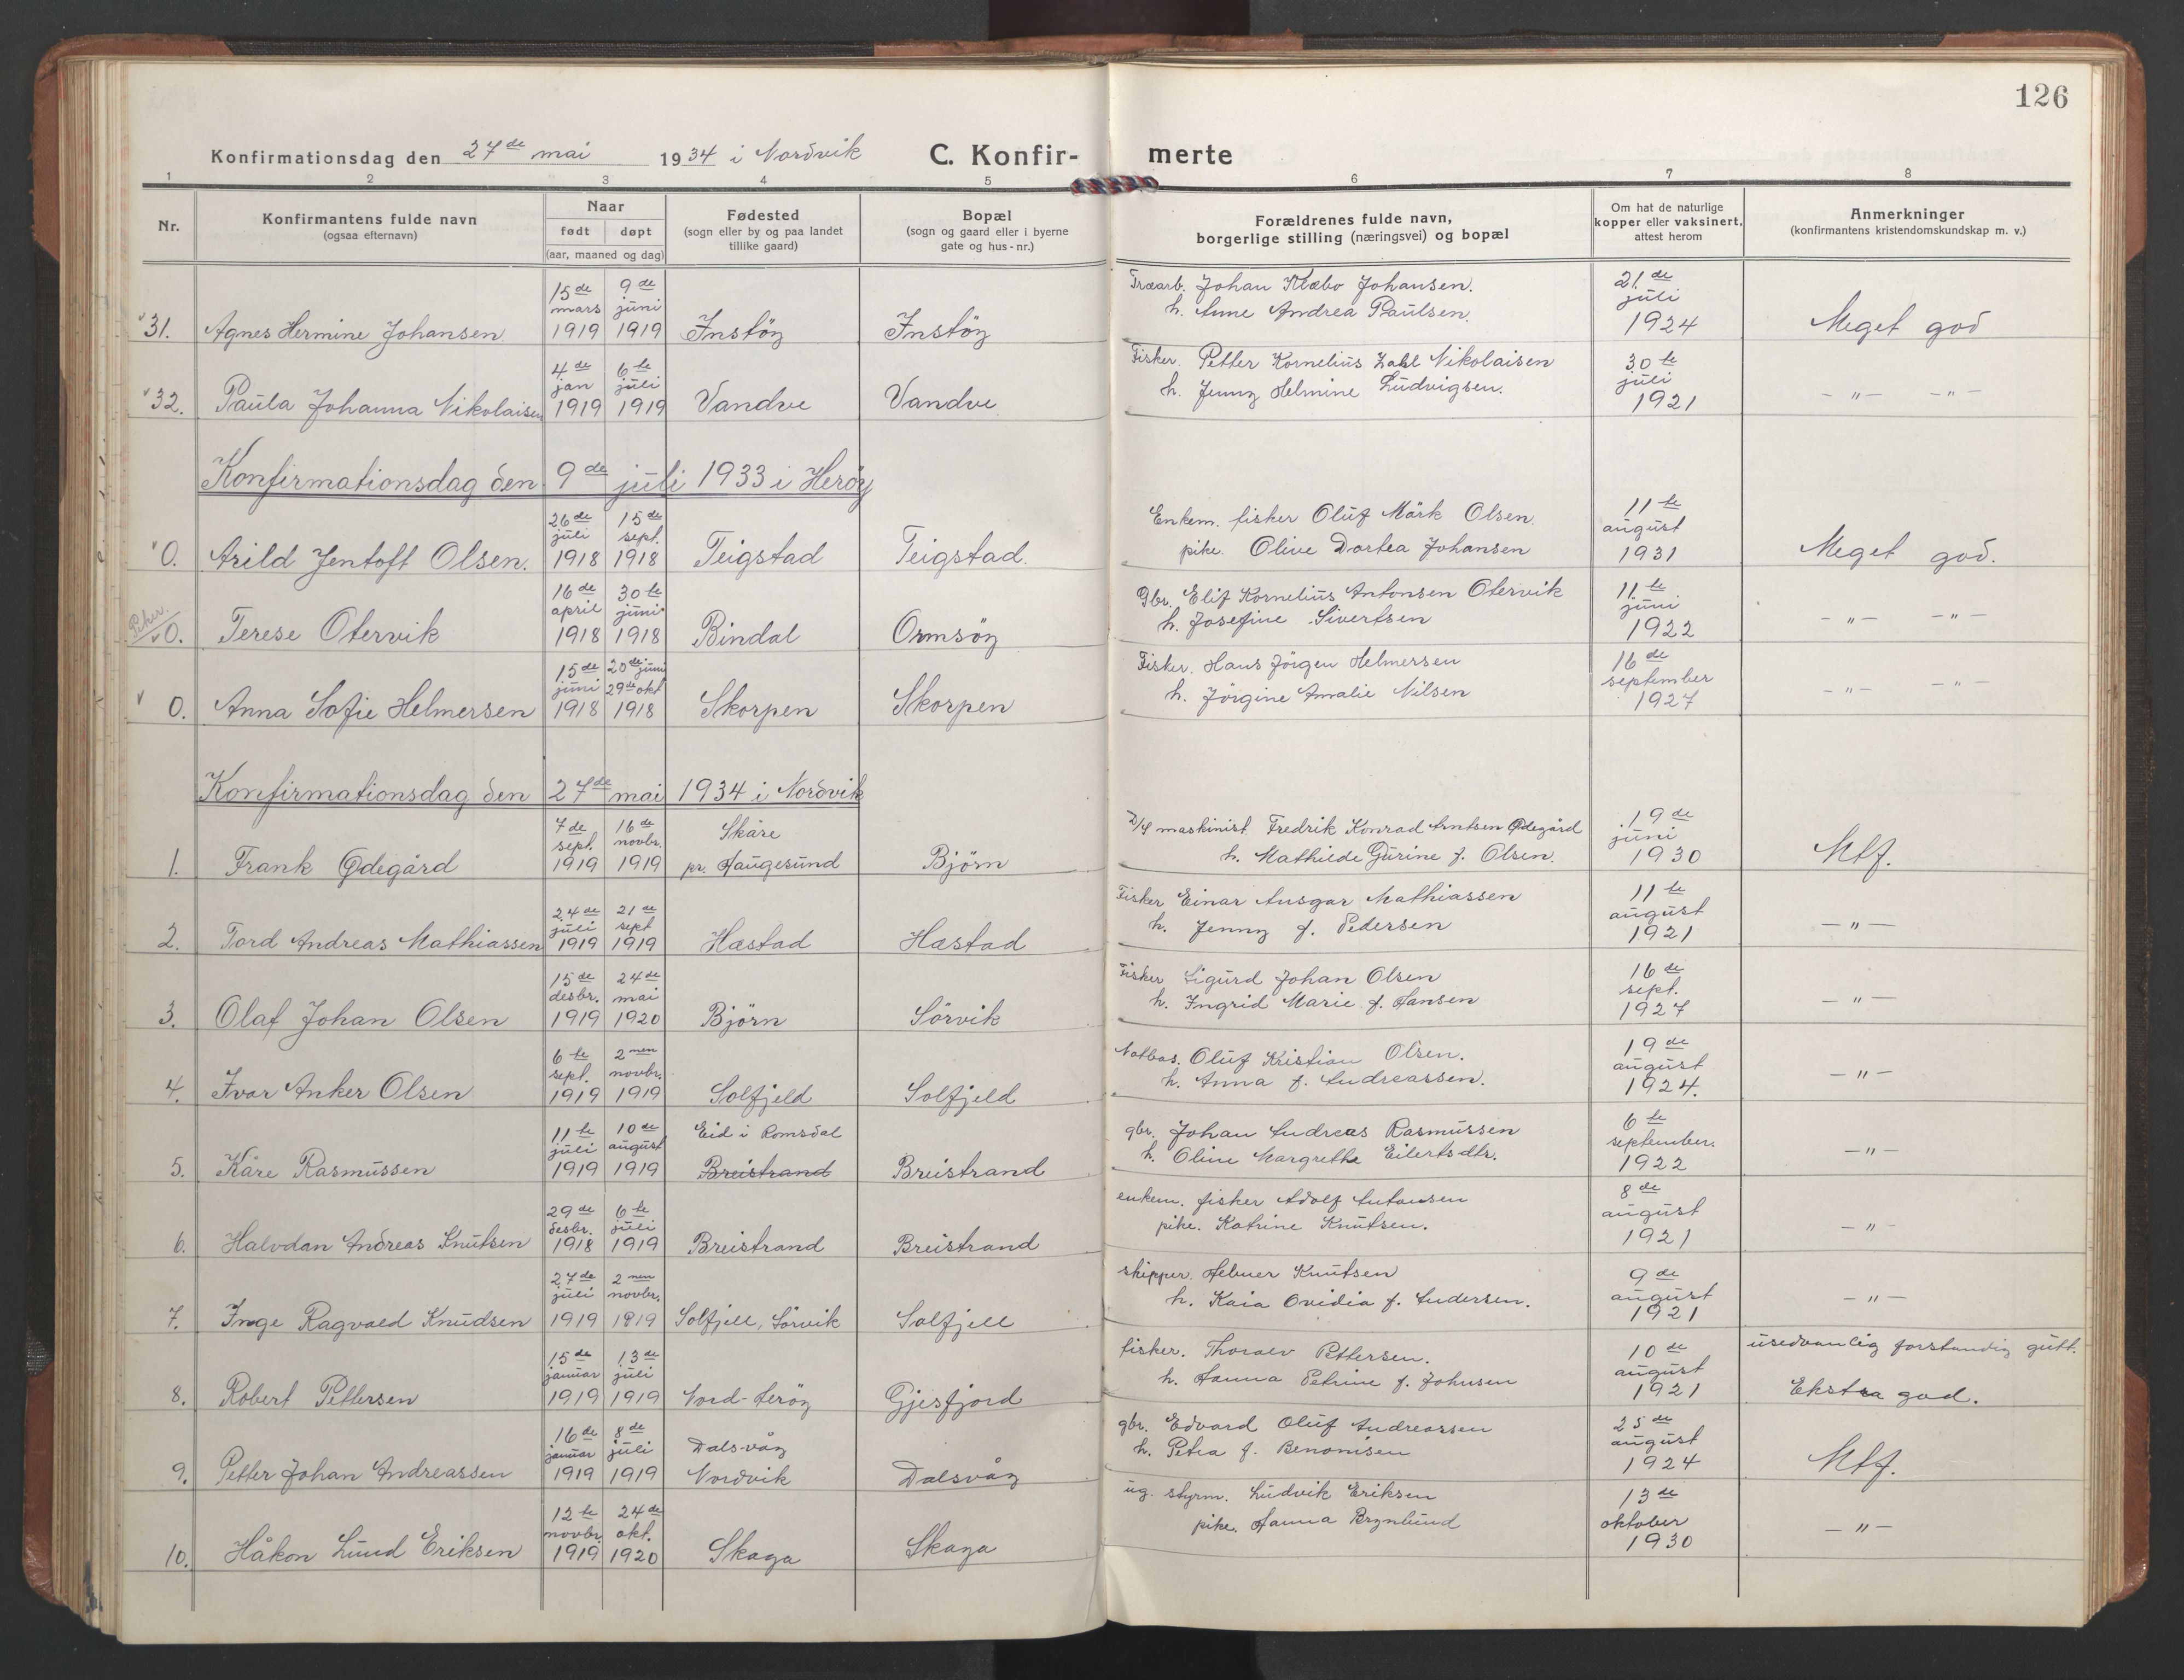 126
Konfirmationsdag den 27de mai 1934 i Nordvik
C. Konfir- merte
1 2 3 4 5 6 7 8
Nr.
Konfirmantens fulde navn
(ogsaa efternavn)
Naar
født døpt
(aar, maaned og dag)
Fødested
(sogn eller by og paa landet
tillike gaard)
Bopæl
(sogn og gaard eller i byerne
gate og hus-nr.)
Forældrenes fulde navn,
borgerlige stilling (næringsvei) og bopæl
Om hat de naturlige
kopper eller vaksinert,
attest herom
Anmerkninger
(konfirmantens kristendomskundskap m. v.)
15de 9de Træarb. Johan Klæbo Johansen. 21.de
mars juni h. Anne Andrea Paulsen. juli
v31. Agnes Hermine Johansen 1919 1919 Instöy Instöy 1924 Meget god
4de 6te Fisker. Petter Kornelius Zahl Nikolaisen 30te
jan juli h. Jenny Helmine Ludvigsen. juli
v32. Paula Johanna Nikolaisen 1919 1919 Vandve Vandve 1921 -"- -"-
Konfirmationsdag den 9de juli 1933 i Heröy
26de 15de Enkem. fisker Oluf Mårk Olsen. 11te
juli sept. pike. Olive Dortea Johansen august
v0. Arild Jentoft Olsen. 1918 1918 Teigstad Teigstad. 1931 Meget god.
Piker.
16de 30te Gbr. Elif Kornelius Antonsen Otervik 11.te
april juni h. Josefine Sivertsen juni
v0. Terese Otervik 1918 1918 Bindal Ormsöy 1922 -"- -"-
15de 20de juni Fisker. Hans Jörgen Helmersen 16de
juni 29de okt h. Jörgine Amalie Nilsen september
v 0. Anna Sofie Helmersen 1918 1918 Skorpen Skorpen 1927 -"- -"-
Konfirmationsdag den 27de mai 1934 i Nordvik
7de 16de Skåre D/S maskinist. Fredrik Konrad Arntsen Ødegård 19de
sept. novbr. h. Mathilde Gurine f. Olsen. juni
1. Frank Ødegård 1919 1919 pr. Haugesund Björn 1930 Mtf.
24de 21de Fisker Einar Ansgar Mathiassen 11te
juli sept h. Jenny f. Pedersen august
2. Tord Andreas Mathiassen 1919 1919 Hæstad Hæstad 1921 -"-
15de 24de Fisker Sigurd Johan Olsen 16de
desbr. mai h. Ingrid Marie f. Hansen sept.
3. Olaf Johan Olsen 1919 1920 Björn Sörvik 1927 -"-
6te 2nen Notbas. Oluf Kristian Olsen. 19de
sept. novbr. h. Anna f. Andreassen. august
4. Ivar Anker Olsen 1919 1919 Solfjeld Solfjeld 1924. -"-
11te 10de Eid i Romsdal gbr. Johan Andreas Rasmussen 6te
juli august h. Oline Margrethe Eilertsdtr. september.
5. Kåre Rasmussen 1919 1919 Breistrand Breistrand 1922 -"-
29de 6te enkem. fisker Adolf Antonsen 8de
desbr. juli pike. Katrine Knutsen. august
6. Halvdan Andreas Knutsen 1918 1919 Breistrand Breistrand 1921 -"-
27de 2nen skipper. Helmer Knutsen 9de
juli novbr. h. Kaia Ovidia f. Andersen. august
7. Inge Ragvald Knudsen 1919 1919 Solfjell, Sörvik Solfjell 1921 -"-
15de 13de fisker. Thoralv Pettersen. 10de usedvanlig forstandig gutt.
januar juli h. Hanna Petrine f. Johnsen august
8. Robert Pettersen 1919 1919 Nord-Heröy Gjesfjord 1921 Ekstra god.
16de 8de Dalsvåg gbr. Edvard Oluf Andreassen 25de
januar juli h. Petra f. Benonisen august
9. Petter Johan Andreassen 1919 1919 Nordvik Dalsvåg 1924 Mtf.
12te 24de ug. styrm. Ludvik Eriksen 13de
novbr. okt. pike. Hanna Brynlund oktober
10. Håkon Lund Eriksen 1919 1920 Skaga Skaga 1930 -"-